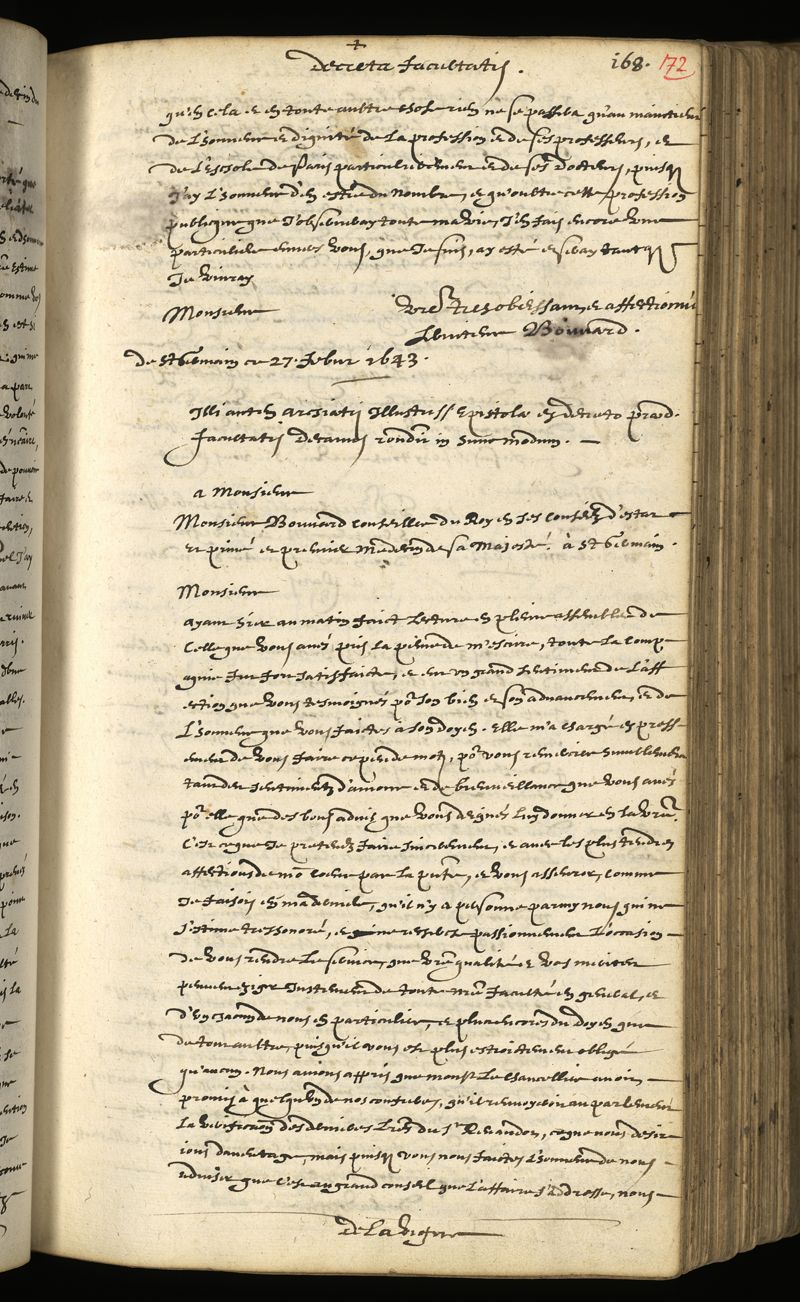 decreta facultatis.
168. 172
qu'en cela et en toute aultre chose rien ne se passera qu'au maintien
de l'honneur et dignité de la profession et de ses professeurs, et
de l'Eschole de Paris particulierement et de ses docteurs, puisqu
J'ay l'honneur d'en estre du nombre, et qu'oultre cette profession
publicque que J'observeray toute ma vie, J'en fais encore une
particuliere envers vous, que Je suis, ay esté et seray tant q
Je vivray
Monsieur vre tresobeissant et affectionné
serviteur Bouvard.
De St Germain ce 27. febur. 1643.
Illi autem archiatri Illustriss Epistolae ex decreto præd.
facultatis decanus rondit in hunc modum.
a Monsieur
Monsieur Bouvard conseiller du Roy en ses conseils d'estat
et privé et premier medecin de sa Majesté. à St Germain.
Monsieur
ayant hier au matin faict lecture en pleine assemblee de
celle que vous avés pris la peine de m'escrire, toute la comp
agnie fut fort satisfaicte, et eut un grand sentiment de l'aff
ection que vous tesmoignés por son bien et son advancement, et de
l'honneur que vous faictes à son doyen. Elle m'a chargé express
ement de vous faire ce peu de mots, por vous remercier humblement
tant des sentiments d'amour et de bienveillance que vous avés
por elle que des bons advis que vous daignés luy donner en la vre.
C'est ce que Je pretends faire sincerement, et avec les plus tendres
affections de mon coeur par la pnte, et vous asseurer, comme
Je faisois en ma derniere, qu'il n'y a personne parmy nous qui ne
s'estime tres honoré, et qui ne recherche passionnement l'occasion
de vous rendre le service, que vre qualité et vos merites
peuvent exiger Justement de toute nre faculté en general, et
d'un chacun de nous en particulier, et plus encores du doyen que
de tout aultre, puisqu'il vous est plus estroictement obligé
qu'aucun. Nous avions appris que monsr le chancellier avoit
promis à quelqu'un de nos confreres, qu'il renvoyeroit au parlement
la verification des dernieres lres du Sr Renaudot, ce que nous desir
ions davantage, mais puisq vous nous faictes l'honneur de nous
adviser que c'est au grand conseil que l'affaire s'addresse, nous
de la Vigne